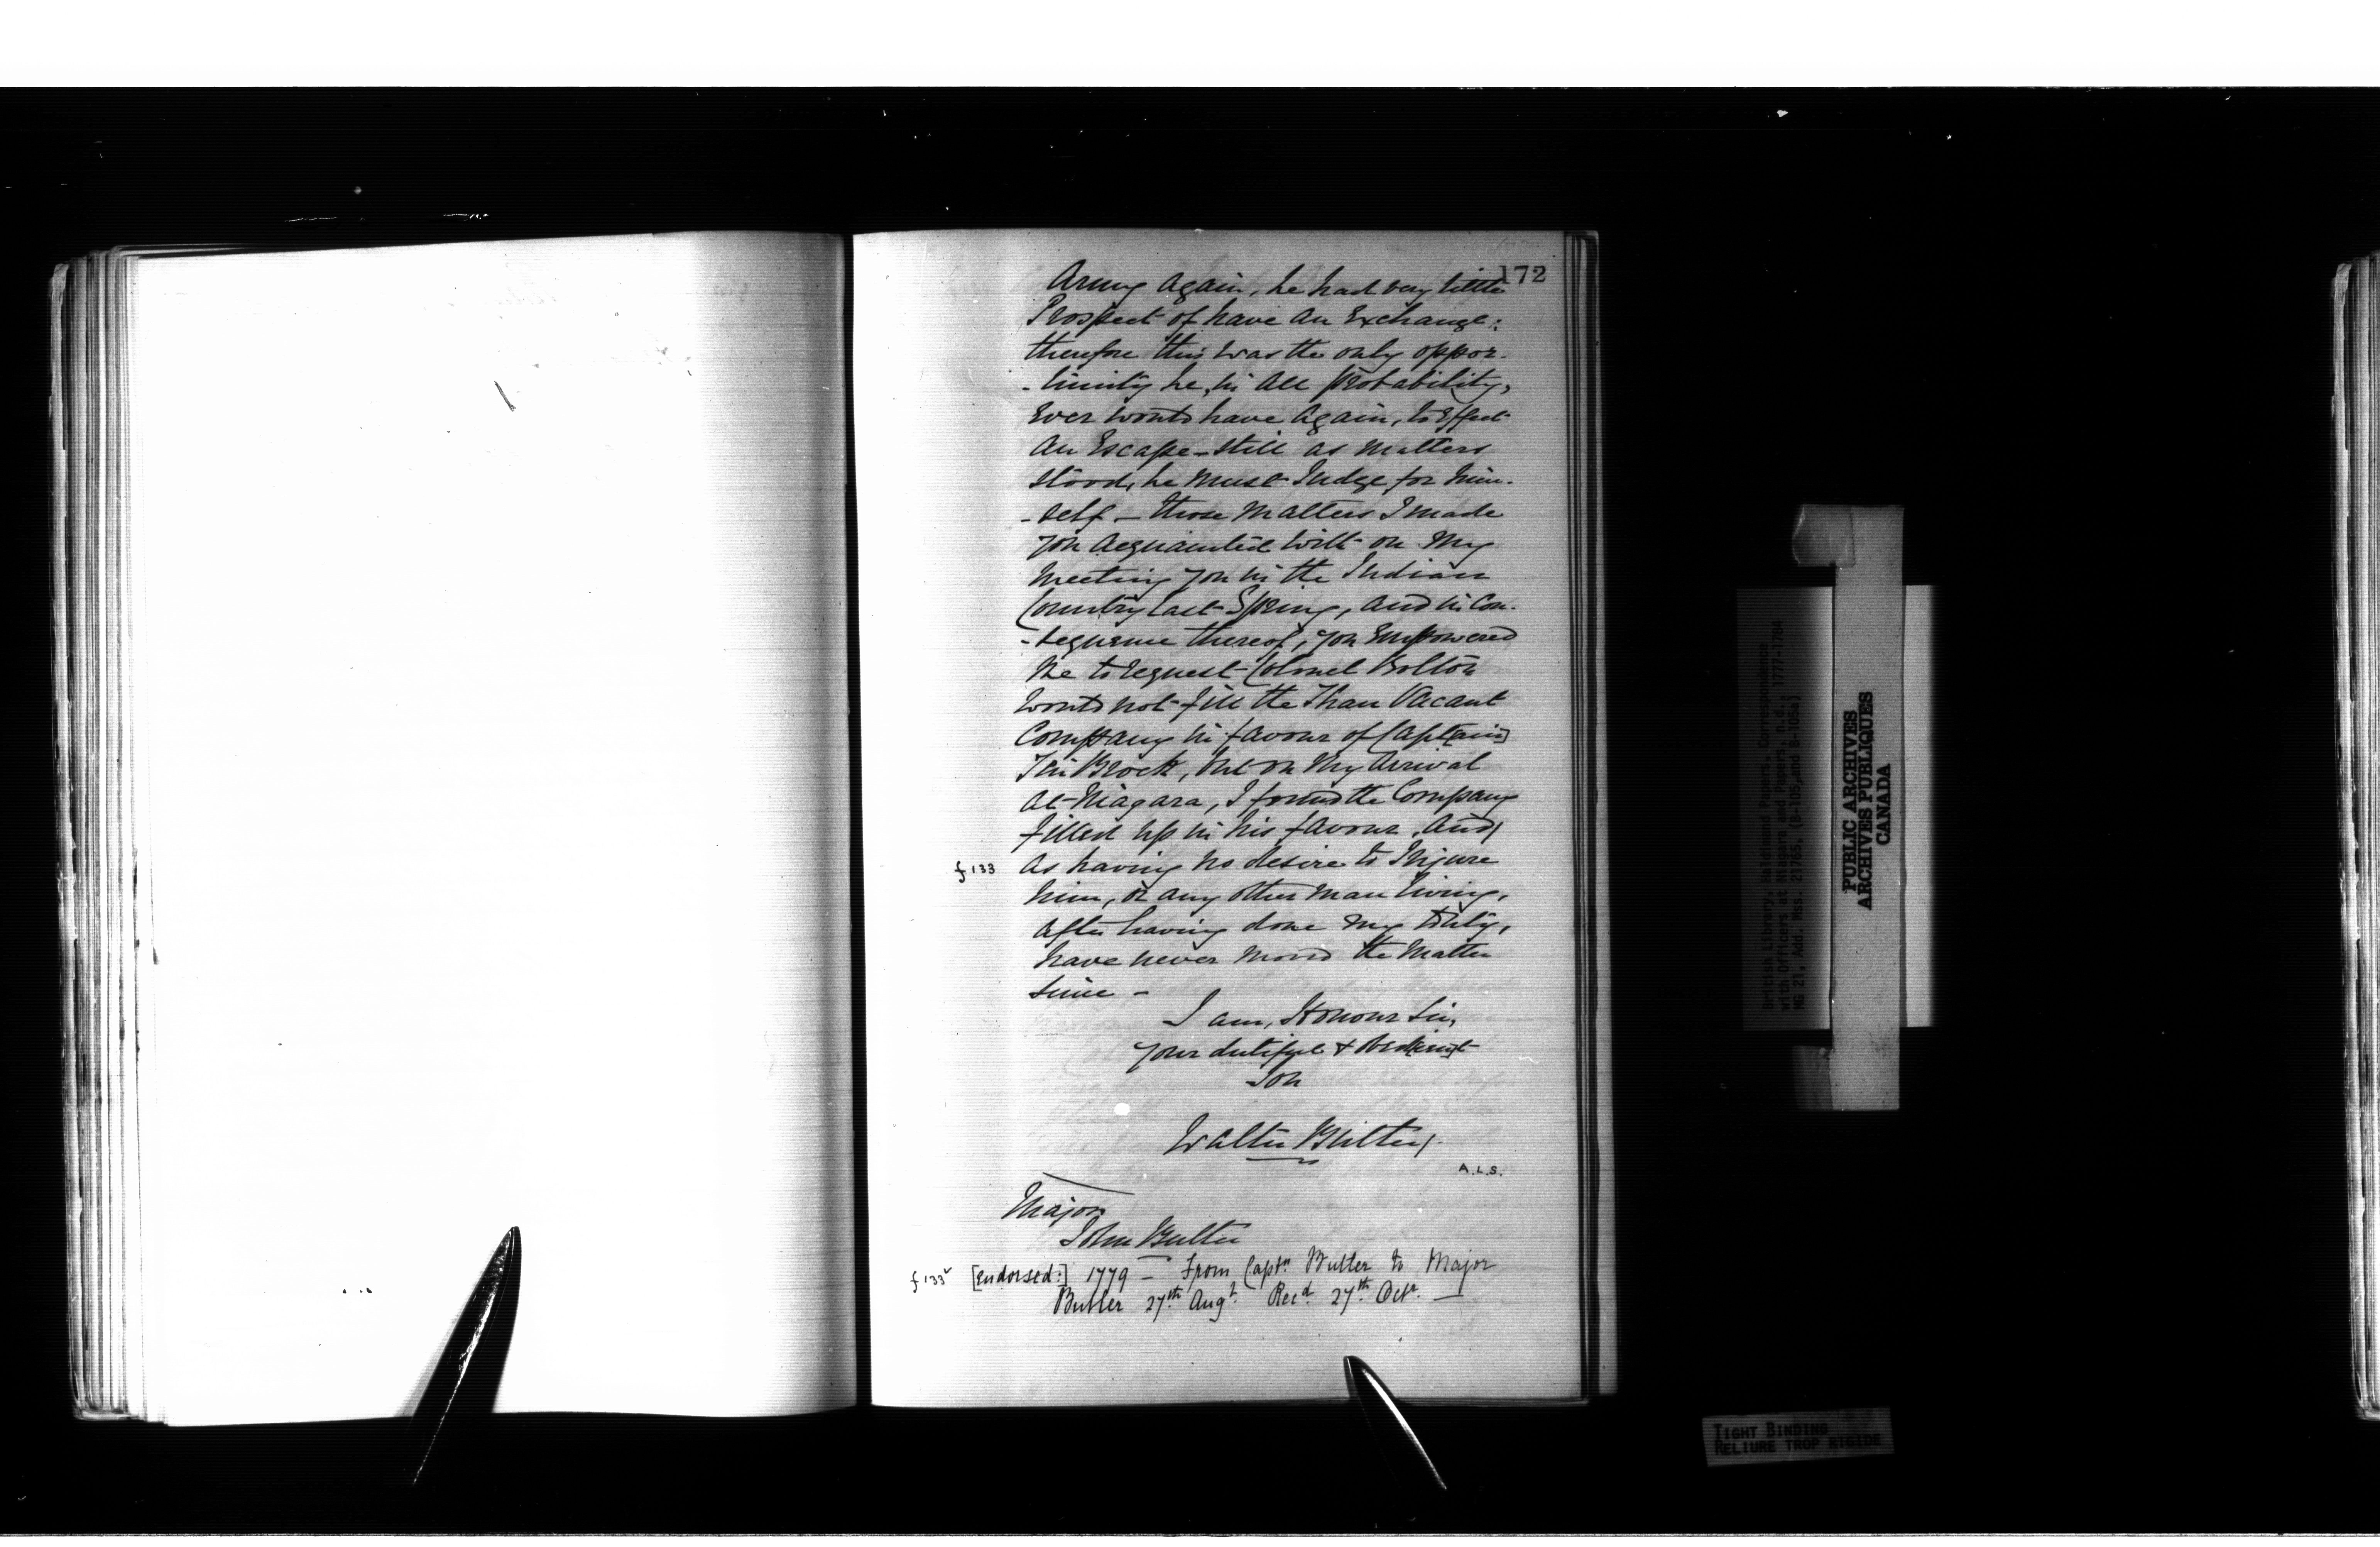 172
Army Again, he had very little
Prospect of have An Exchange;
therefore this was the only oppor-
-tunity he, in all probability,
Ever would have Again, to Effect
An Escape - Still as Matters
Stood, he Must Judge for him-
-self - those Matters I made
you Acquainted with on My
Meeting you in the Indian
Country last Spring, and in Con-
-sequence thereof, you Empowered
Me to request Colonel Bolton
would not fill the Than Vacant
Company in favour of Capt[ain]
Ten Brock, but on My Arrival
At Niagara, I found the Company
filled up in his favour, and
f 133 As having no desire to Injure
him, or any other Man living,
After having done My Duty,
have never Moved the Matter
Since -
I am, Honour Sir,
Your dutifull & Obed[ien]t
Son
Walter Butler
A.L.S.
Major
John Butler
f 133v [Endorsed:] 1779 - From Captn Butler to Major
Butler 27th Augt. Recd. 27th Octr. —
British Library, Haldimand Papers, Correspondence
with Officers at Niagara and Papers, n.d., 1777-1784
MG 21, Add. Mss. 21765, (B-105, and B-105a)
PUBLIC ARCHIVES
ARCHIVES PUBLIQUES
CANADA
TIGHT BINDING
RELIURE TROP RIGIDE